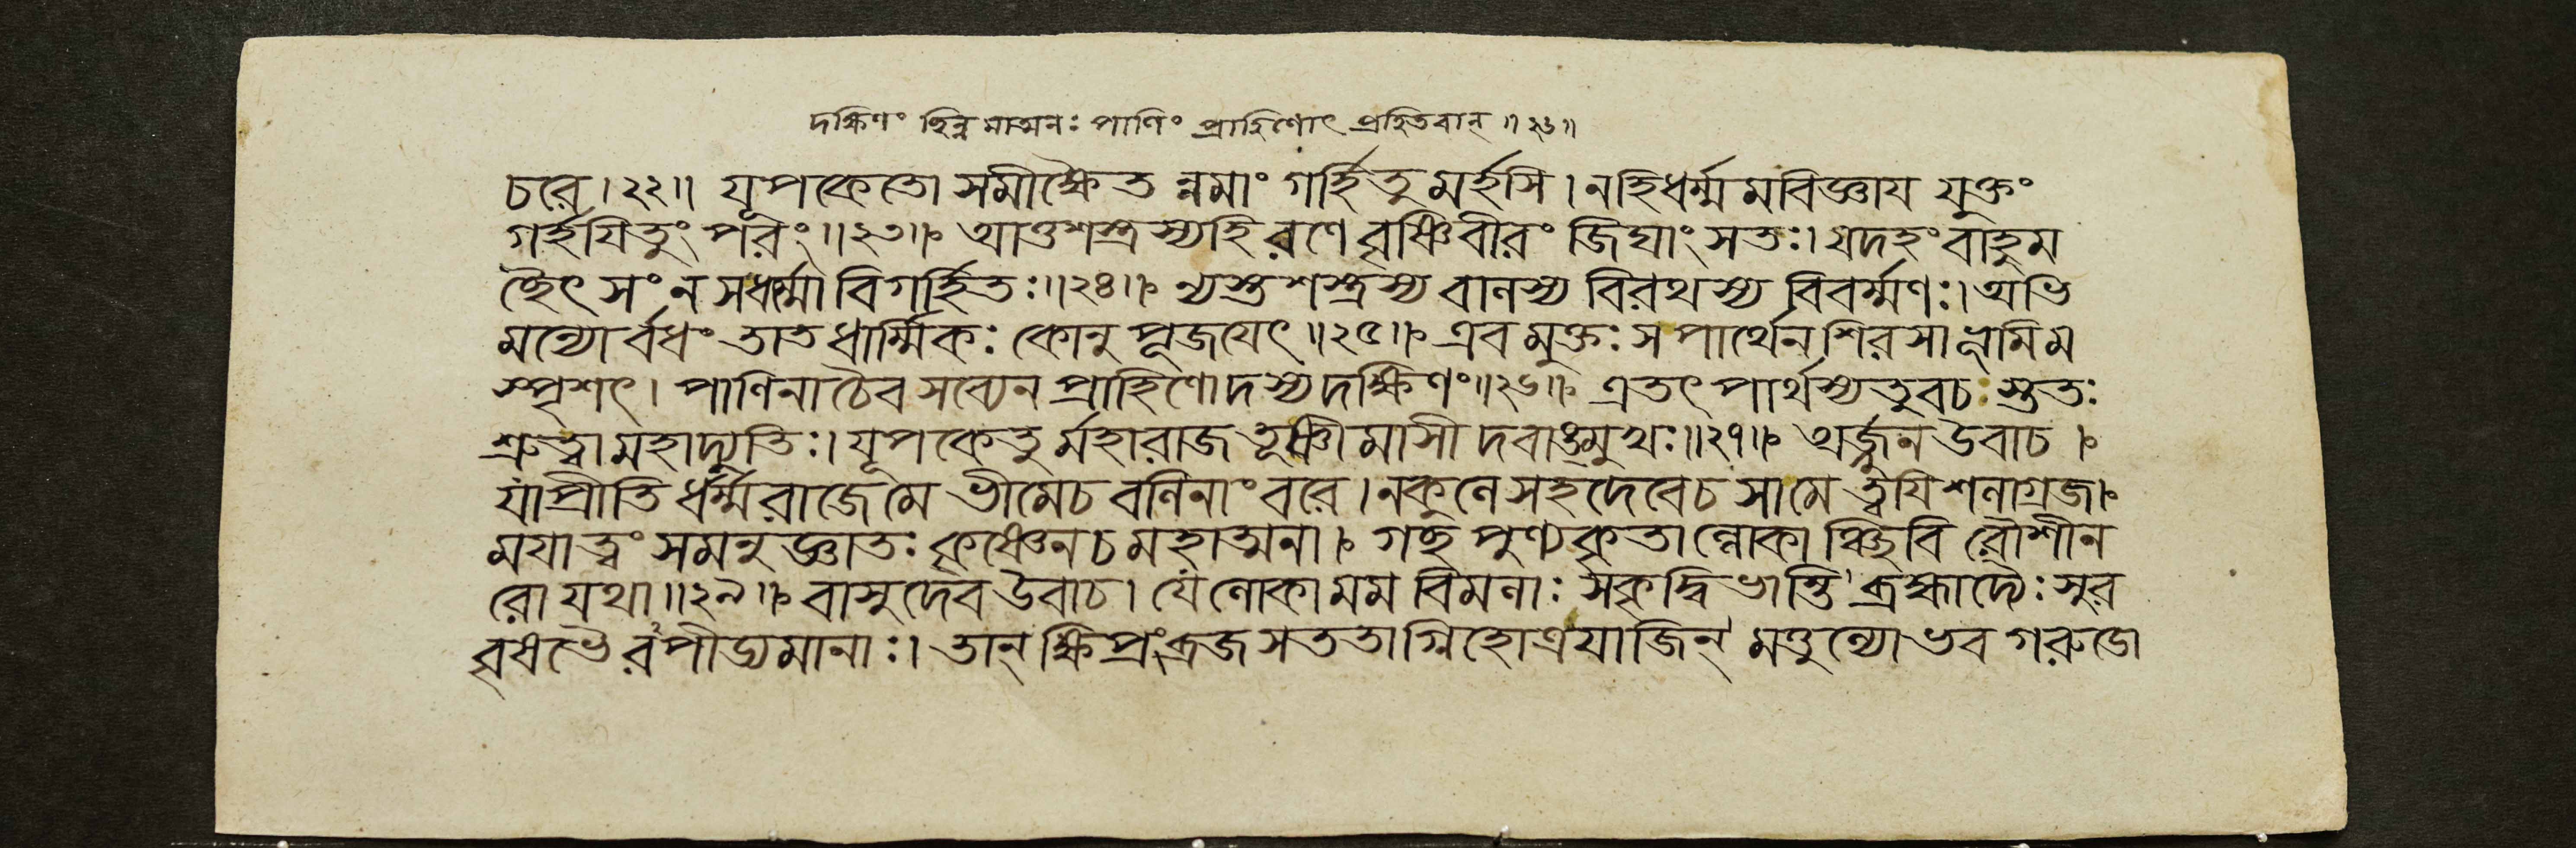 দক্ষিণং ছিন্নমাত্মনঃ পাণিং প্রাহিণোৎ প্রহিতবান্ ॥ ২৬॥
চরে। ২২॥ যূপকেতো সমীক্ষ্যৈতন্নমাং গর্হিতুমর্হসি। নহিধর্ম্মমবিজ্ঞায যুক্তং
গর্হযিতুং পরং॥২৩॥ আত্তশস্ত্রস্যহি রণে বৃষ্ণিবীরং জিঘাংসতঃ। যদহং বাহুম
চ্ছৈৎসং ন সধর্ম্মো বিগর্হিতঃ॥২৪॥ ন্যস্তশস্ত্রস্য বালস্য বিরথস্য বিবর্ম্মণঃ। অভি
মন্যোর্বধং তাত ধার্ম্মিকঃ কোনু পূজযেৎ॥২৫॥ এবমুক্তঃ সপার্থেন শিরসা ভূমিম
স্পৃশৎ। পাণিনাচৈব সব্যেন প্রাহিণোদস্য দক্ষিণং॥২৬॥ এতৎ পার্থস্যতু বচঃ স্তুতঃ
শ্রুত্বা মহাদ্যুতিঃ। যূপকেতুর্মহারাজ তূষ্ণীমাসীদবাঙ্মুখঃ॥২৭॥ অর্জ্জুন উবাচ।
যাপ্রীতি ধর্ম্মরাজেমে ভীমেচ বলিনাংবরে। নকুলে সহদেবেচ সামে ত্বযি শলাগ্রজ।
মযাত্বং সমনুজ্ঞাতঃ কৃষ্ণেনচ মহাত্মনা। গচ্ছ পুণ্যকৃতাল্লোকাঞ্ছিবিরৌশীন
রো যথা॥২৯॥ বাসুদেব উবাচ। যেলোকা মম বিমলাঃ সকৃদ্বিভান্তি ব্রহ্মাদ্যৈঃ সুর
বৃষভৈরপীড্যমানাঃ। তান্ ক্ষিপ্রং ব্রজ সততাগ্নিহোত্রযাজিন্ মত্তুল্যো ভব গরুডো